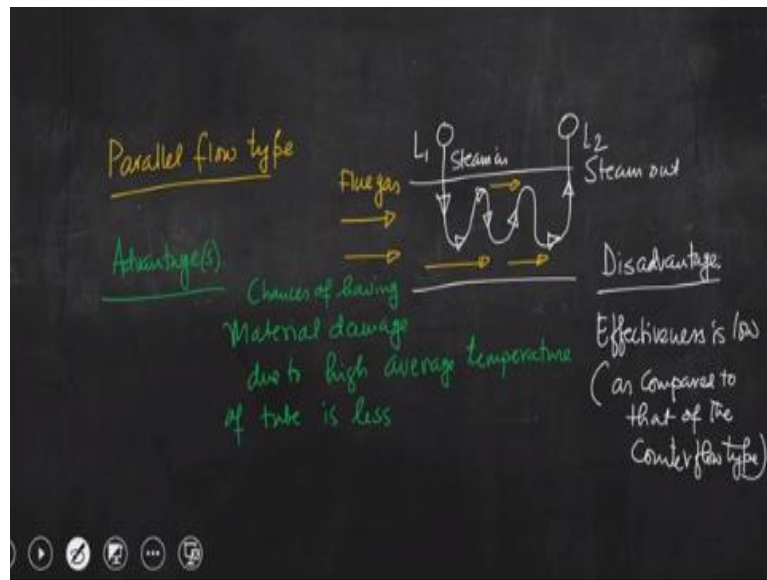 Parallel flow type
Flue gas
L1
Steam in
L2
Steam out
Advantage(s)
Chances of having
Material damage
due to high average temperature
of tube is less
Disadvantage
Effectiveness is low
(as compared to
that of the
Counterflow type)